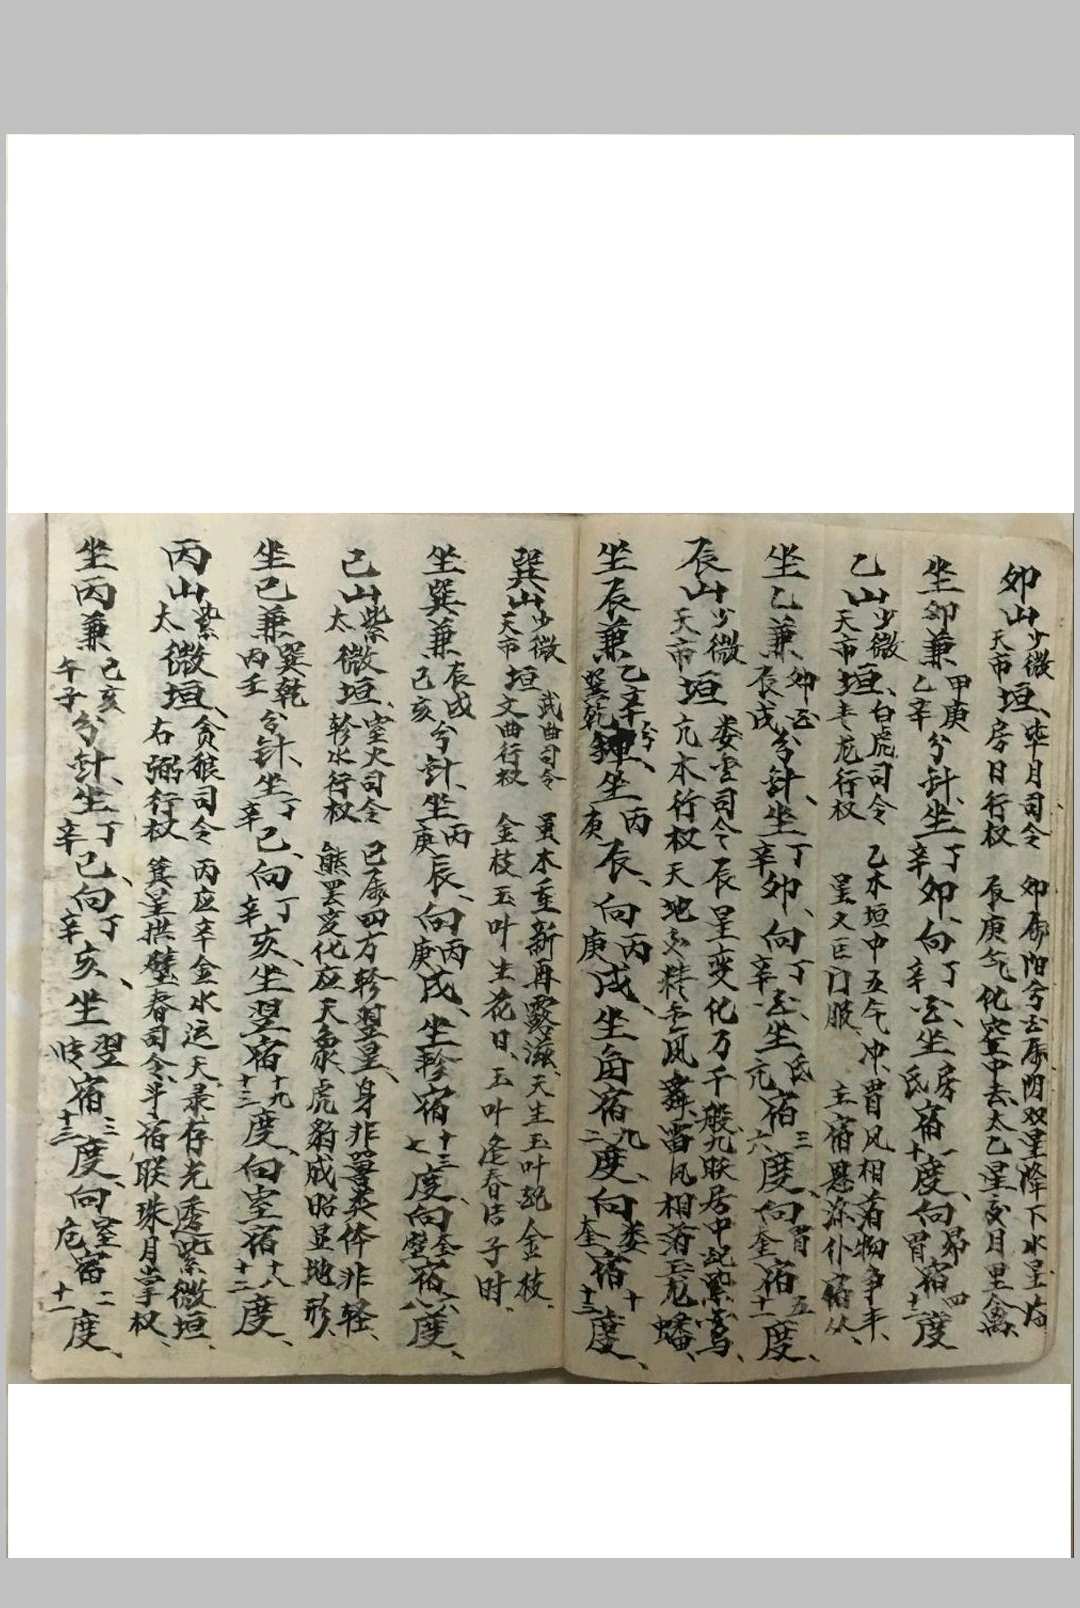 卯山少微天市垣、毕月司令房日行权 卯属阳兮酉属阴双星降下水星
辰庚气化空中去太乙星交月里禽、
坐卯兼甲庚乙辛分针、坐丁辛卯、向丁辛酉、坐房氐宿一十度、向昴胃宿四十二度
乙山少微天市垣、白虎司令青龙行权 乙木垣中五气冲、胃风相看物争丰、
坐乙兼卯酉辰戌分针、坐丁辛卯、向丁辛酉、坐氐亢宿三六度、向胃奎宿五十一度、
辰山少微天市垣 娄金司令亢木行权 辰星变化万千般、九联居中起紫鸾
天地 精 凤舞、雷风相 玉龙蟠、
坐辰兼乙辛巽乾分针、坐丙庚辰、向丙庚戌、坐角宿九二度、向娄奎宿十十三度、
巽山少微天市垣 武曲司令文曲行权 巽木重新再露滋、天生玉叶 金枝、
金枝玉叶生花日、玉叶逢春结子时、
坐巽兼辰戌巳亥分针、坐丙庚辰、向丙庚戌、坐轸宿十三七度、向奎壁宿六八度、
巳山紫太微垣、室火司令轸水行权 巳属四方轸翌星、身非嚣类体非轻、
熊罢变化应天象、虎豹成昭显地形、
坐巳兼巽乾丙壬分针、坐丁辛巳、向丁辛亥、坐翌宿十九十三度、向室宿十八十二度、
丙山紫太微垣、贪狼司令右弼行权 丙应辛金水运天、录存光透紫微垣、
箕星拱壁春司令、斗宿联珠月掌权、
坐丙兼巳亥午子分针、坐丁辛巳、向丁辛亥、坐翌 宿三十三度、向室危宿二十一度、